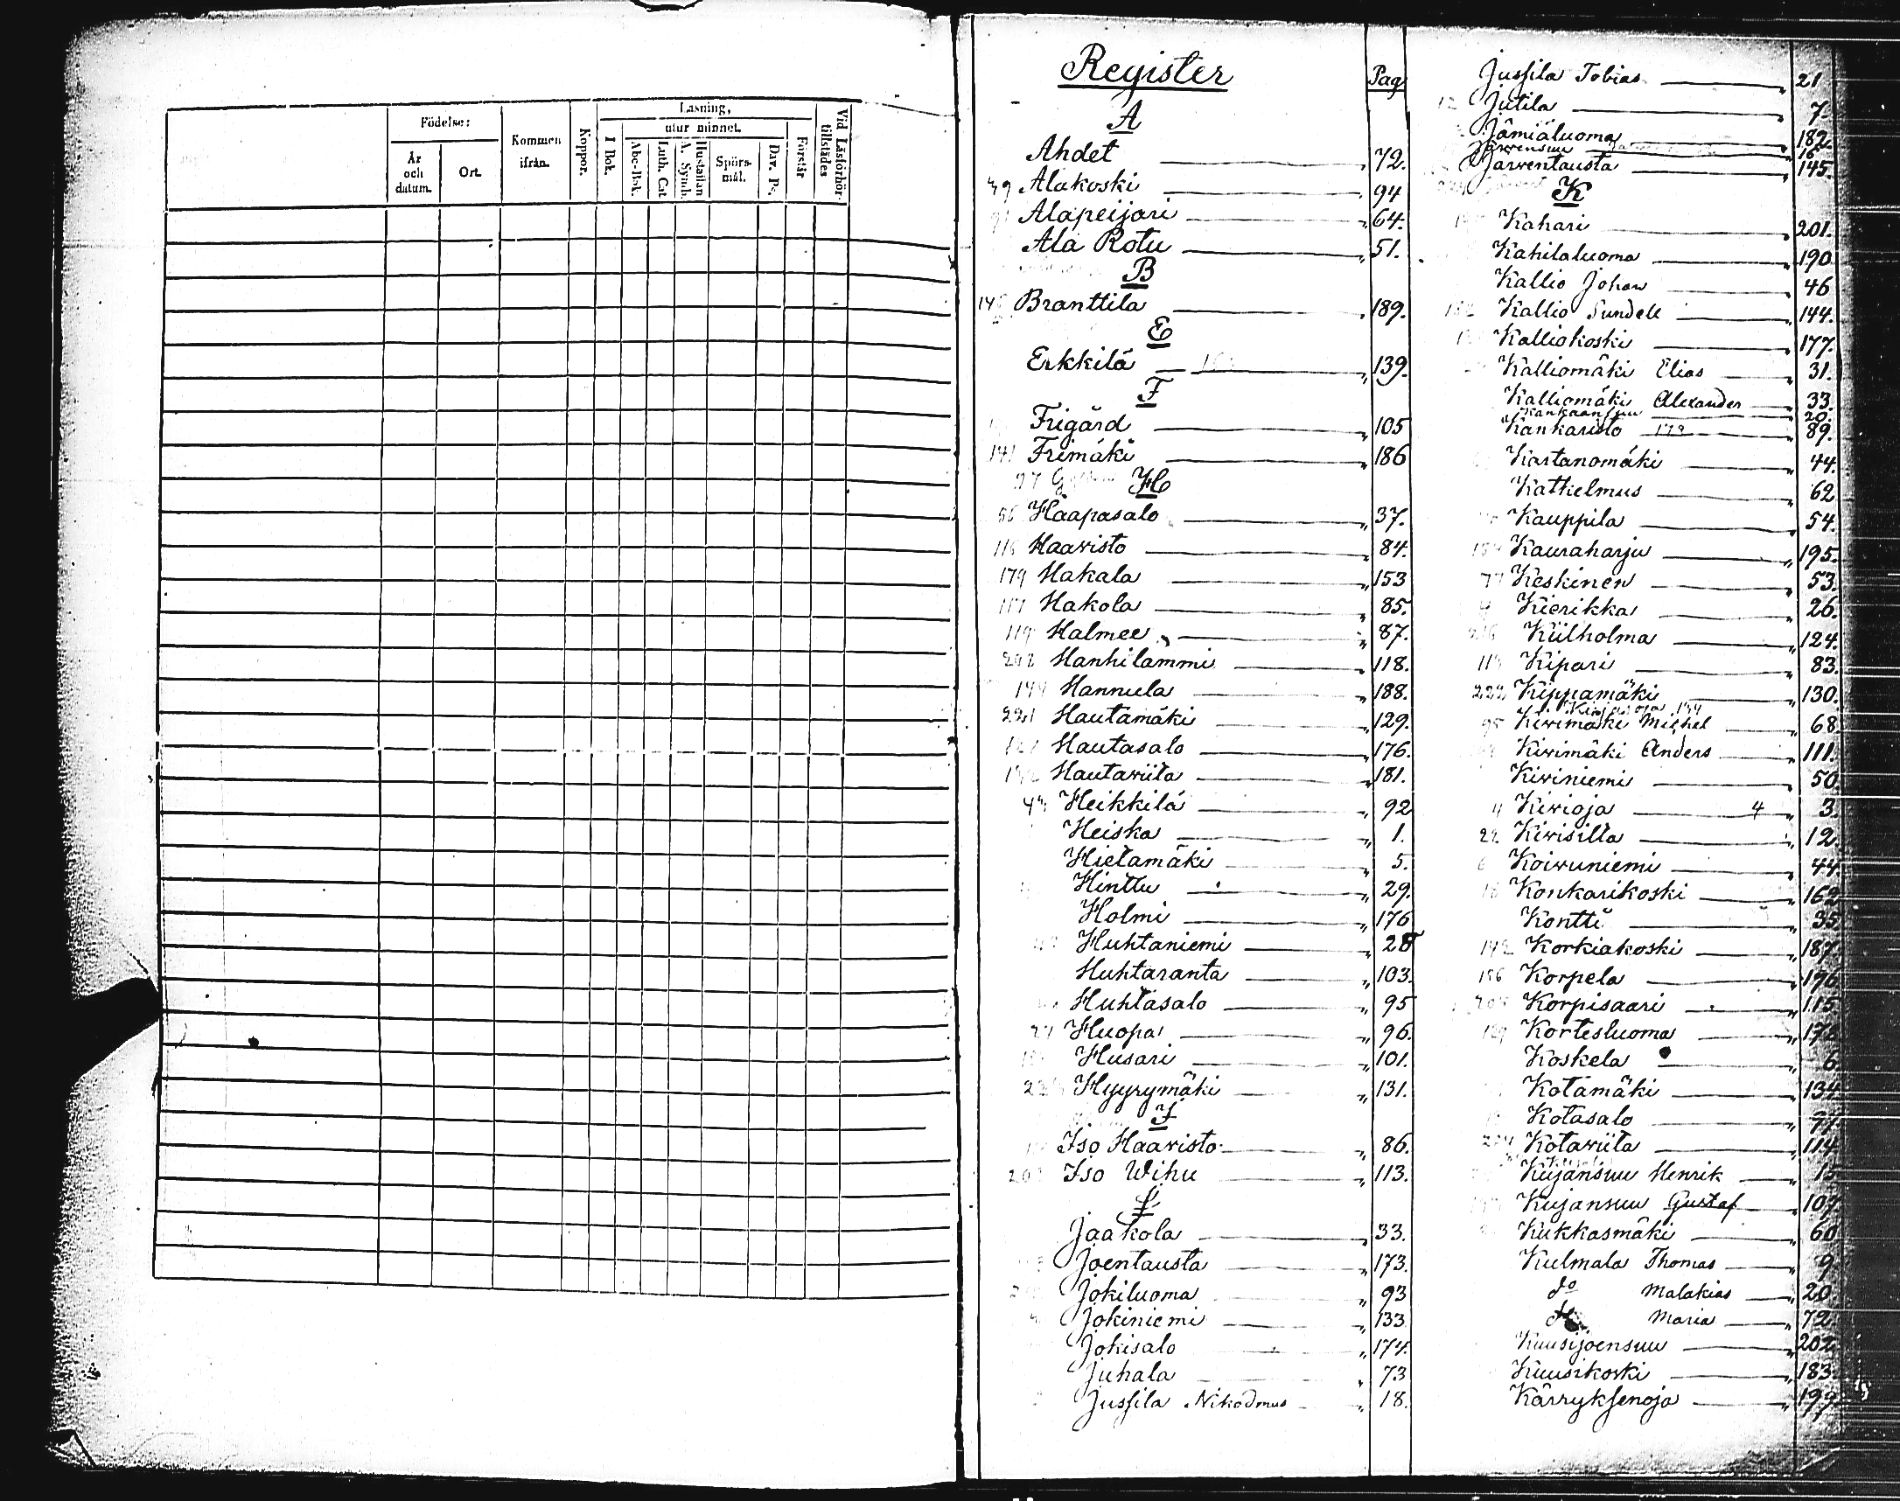 Födelse:
År och datum.
Ort.
Kommen ifrån.
Koppor.
Läsning,
utur minnet.
I Bok.
Abc-Bok.
Luth. Cat
A. Symb.
Hustaflan
Spörs-mål.
Dav. Ps.
Förstår
Vid Läsförhör tillstädes
Register Pag
A
Ahdet 72.
Alakoski 94
Alapeijari 64.
Ala Rotu 51.
B
Branttila 189.
E
Erkkilä 139.
F
Frigård 105
141 Frimäki 186
H
56 Haapasalo 37.
116 Haaristo 84.
179 Hakala 153
117 Hakola 85.
119 Halmee 87.
Hanhilammi 118.
144 Hannula 188.
221 Hautamäki 129.
Hautasalo 176.
Hautariita 181.
Heikkilä 92
Heiska 1.
Hietamäki 5.
Hinttu 29.
Holmi 176
Huhtaniemi 28
Huhtaranta 103.
Huhtasalo 95
Huopa 96.
Husari 101.
Hyyrymäki 131.
I
Iso Haaristo 86.
Iso Wihu 113.
J
Jaakola 33.
Joentausta 173.
Jokiluoma 93
Jokiniemi 133
Jokisalo 174.
Juhala 73
Jussila Nikodmus 18.
Jussila Tobias 21
12 Jutila 7.
Jämiäluoma 182.
Järvensuu 16
Järventausta 145.
K
Kahari 201.
Kahilaluoma 190
Kallio Johan 46
Kallio Sundell 144.
Kalliokoski 177.
Kalliomäki Elias 31.
Kalliomäki Alexander 33.
Kankaansuu 20.
Kankaristo 173 89.
Kartanomäki 44.
Kathelmus 62
Kauppila 54.
Kauraharju 195.
Keskinen 53.
Kierikka 26.
Kiilholma 124.
Kipari 83.
222 Kippamäki 130.
95 Kivimäki Michel 68
Kivimäki Anders 111.
Kiviniemi 50.
4 Kivioja 4 3.
22 Kivisilta 12.
6 Koivuniemi 44
Konkarikoski 162
Kontti 35
142 Korkiakoski 187.
156 Korpela 196
Korpisaari 115
129 Kortesluoma 172
Koskela 6
Kotamäki 134
Kotasalo 77.
Kotariita 114
Kujansuu Henrik 15
Kujansuu Gustaf 107
Kukkasmäki 60
Kulmala Thomas 9
do Malakias 20.
do Maria 72.
Kuusijoensuu 202
Kuusikoski 183.
Kärryksenoja 199